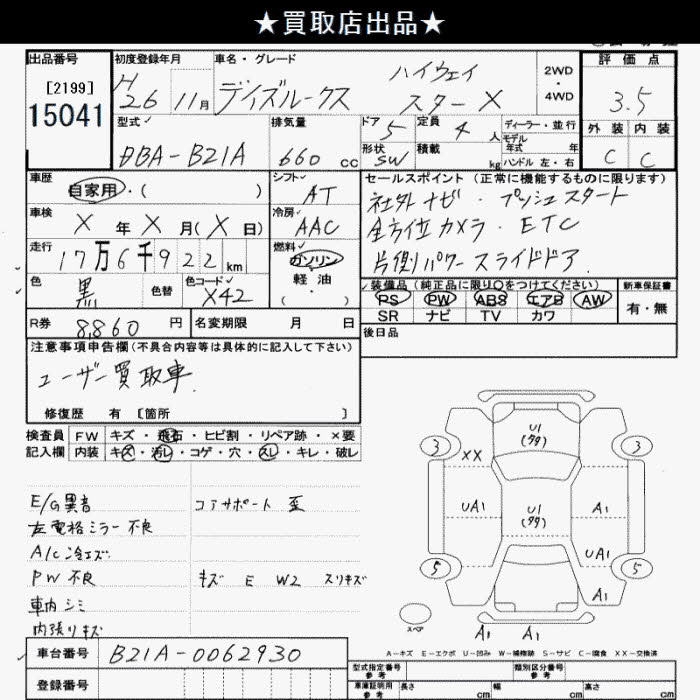 ★買取店出品★
出品番号
[2199]
15041
初度登録年月
H26 11月
車名・グレード
デイズルークス ハイウェイスターX
2WD・4WD
評価点
3.5
外装 内装
C C
型式
DBA-B21A
排気量
660 cc
ドア 5
形状 SW
定員 4 人
積載 kg
ディーラー・並行
モデル年式 年
ハンドル 左・右
車歴
自家用・( )
シフト
AT
車検
X 年 X 月(X 日)
冷房
AAC
走行
17万6千922km
燃料
ガソリン
軽油
( )
色
黒
色替
色コード
X42
セールスポイント (正常に機能するものに限ります)
社外ナビ・プッシュスタート
全方位カメラ・ETC
片側パワースライドドア
装備品(純正品に限り○をつけてください)
PS PW ABS エアB AW
SR ナビ TV カワ
新車保証書
有・無
R券 8860 円
名変期限 月 日
後日品
注意事項申告欄(不具合内容等は具体的に記入して下さい)
ユーザー買取車.
修復歴 有 [箇所 ]
検査員 FW キズ・飛石・ヒビ割・リペア跡・×要
記入欄 内装 キズ・汚レ・コゲ・穴・スレ・キレ・破レ
E/G異音
左電格ミラー不良
A/C冷エズ
PW不良
車内シミ
内張りキズ
コアサポート 歪
キズ E W2 スリキズ
U1
(タタ)
3 3
XX
UA1
U1
(タタ)
A1
UA1
5 5
A1
スペア
A1 A1
A-キズ E-エクボ U-凹み W-補修跡 S-サビ C-腐食 XX-交換済
車台番号
B21A-0062930
登録番号
型式指定番号
参考
類別区分番号
参考
車庫証明用
参考
長さ cm 幅 cm 高さ cm